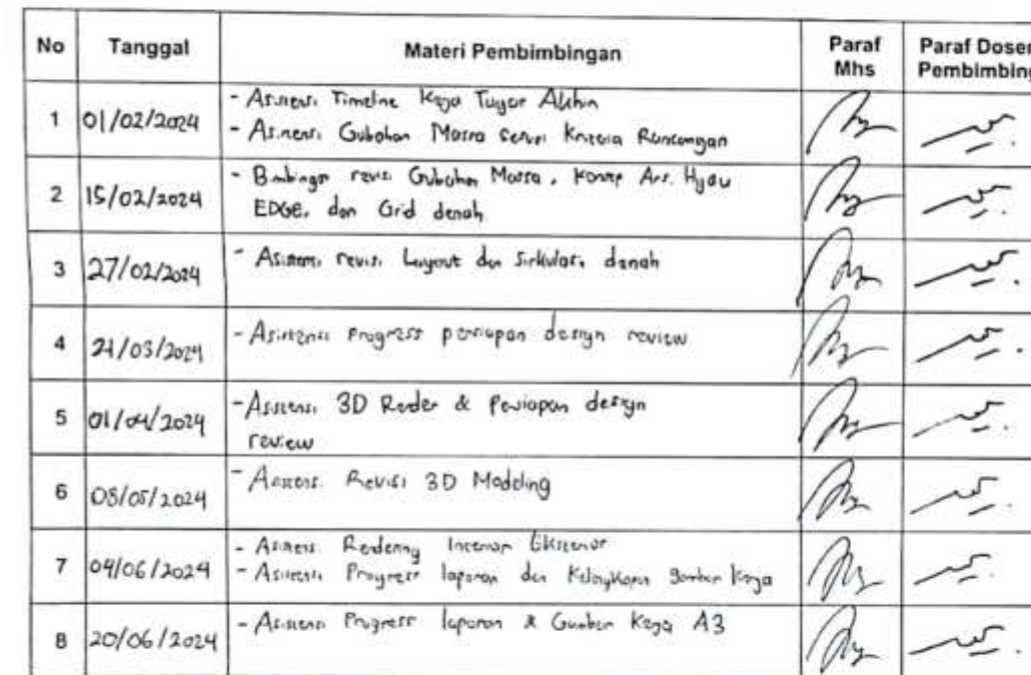 No Tanggal Materi Pembimbingan Paraf Mhs Paraf Dosen Pembimbing
1 01/02/2024 - Asistensi Timeline Kerja Tugas Akhir
- Asistensi Gubahan Massa sesuai Kriteria Rancangan
2 15/02/2024 - Bimbingan revisi Gubahan Massa, Konsep Ars. Hijau
EDGE, dan Grid denah
3 27/02/2024 - Asistensi revisi Layout dan Sirkulasi denah
4 21/03/2024 - Asistensi Progress persiapan design review
5 01/04/2024 - Asistensi 3D Render & Persiapan design
review
6 08/05/2024 - Asistensi Revisi 3D Modeling
7 04/06/2024 - Asistensi Rendering Interior Eksterior
- Asistensi Progress laporan dan Kelengkapan gambar kerja
8 20/06/2024 - Asistensi Progress laporan & Gambar Kerja A3